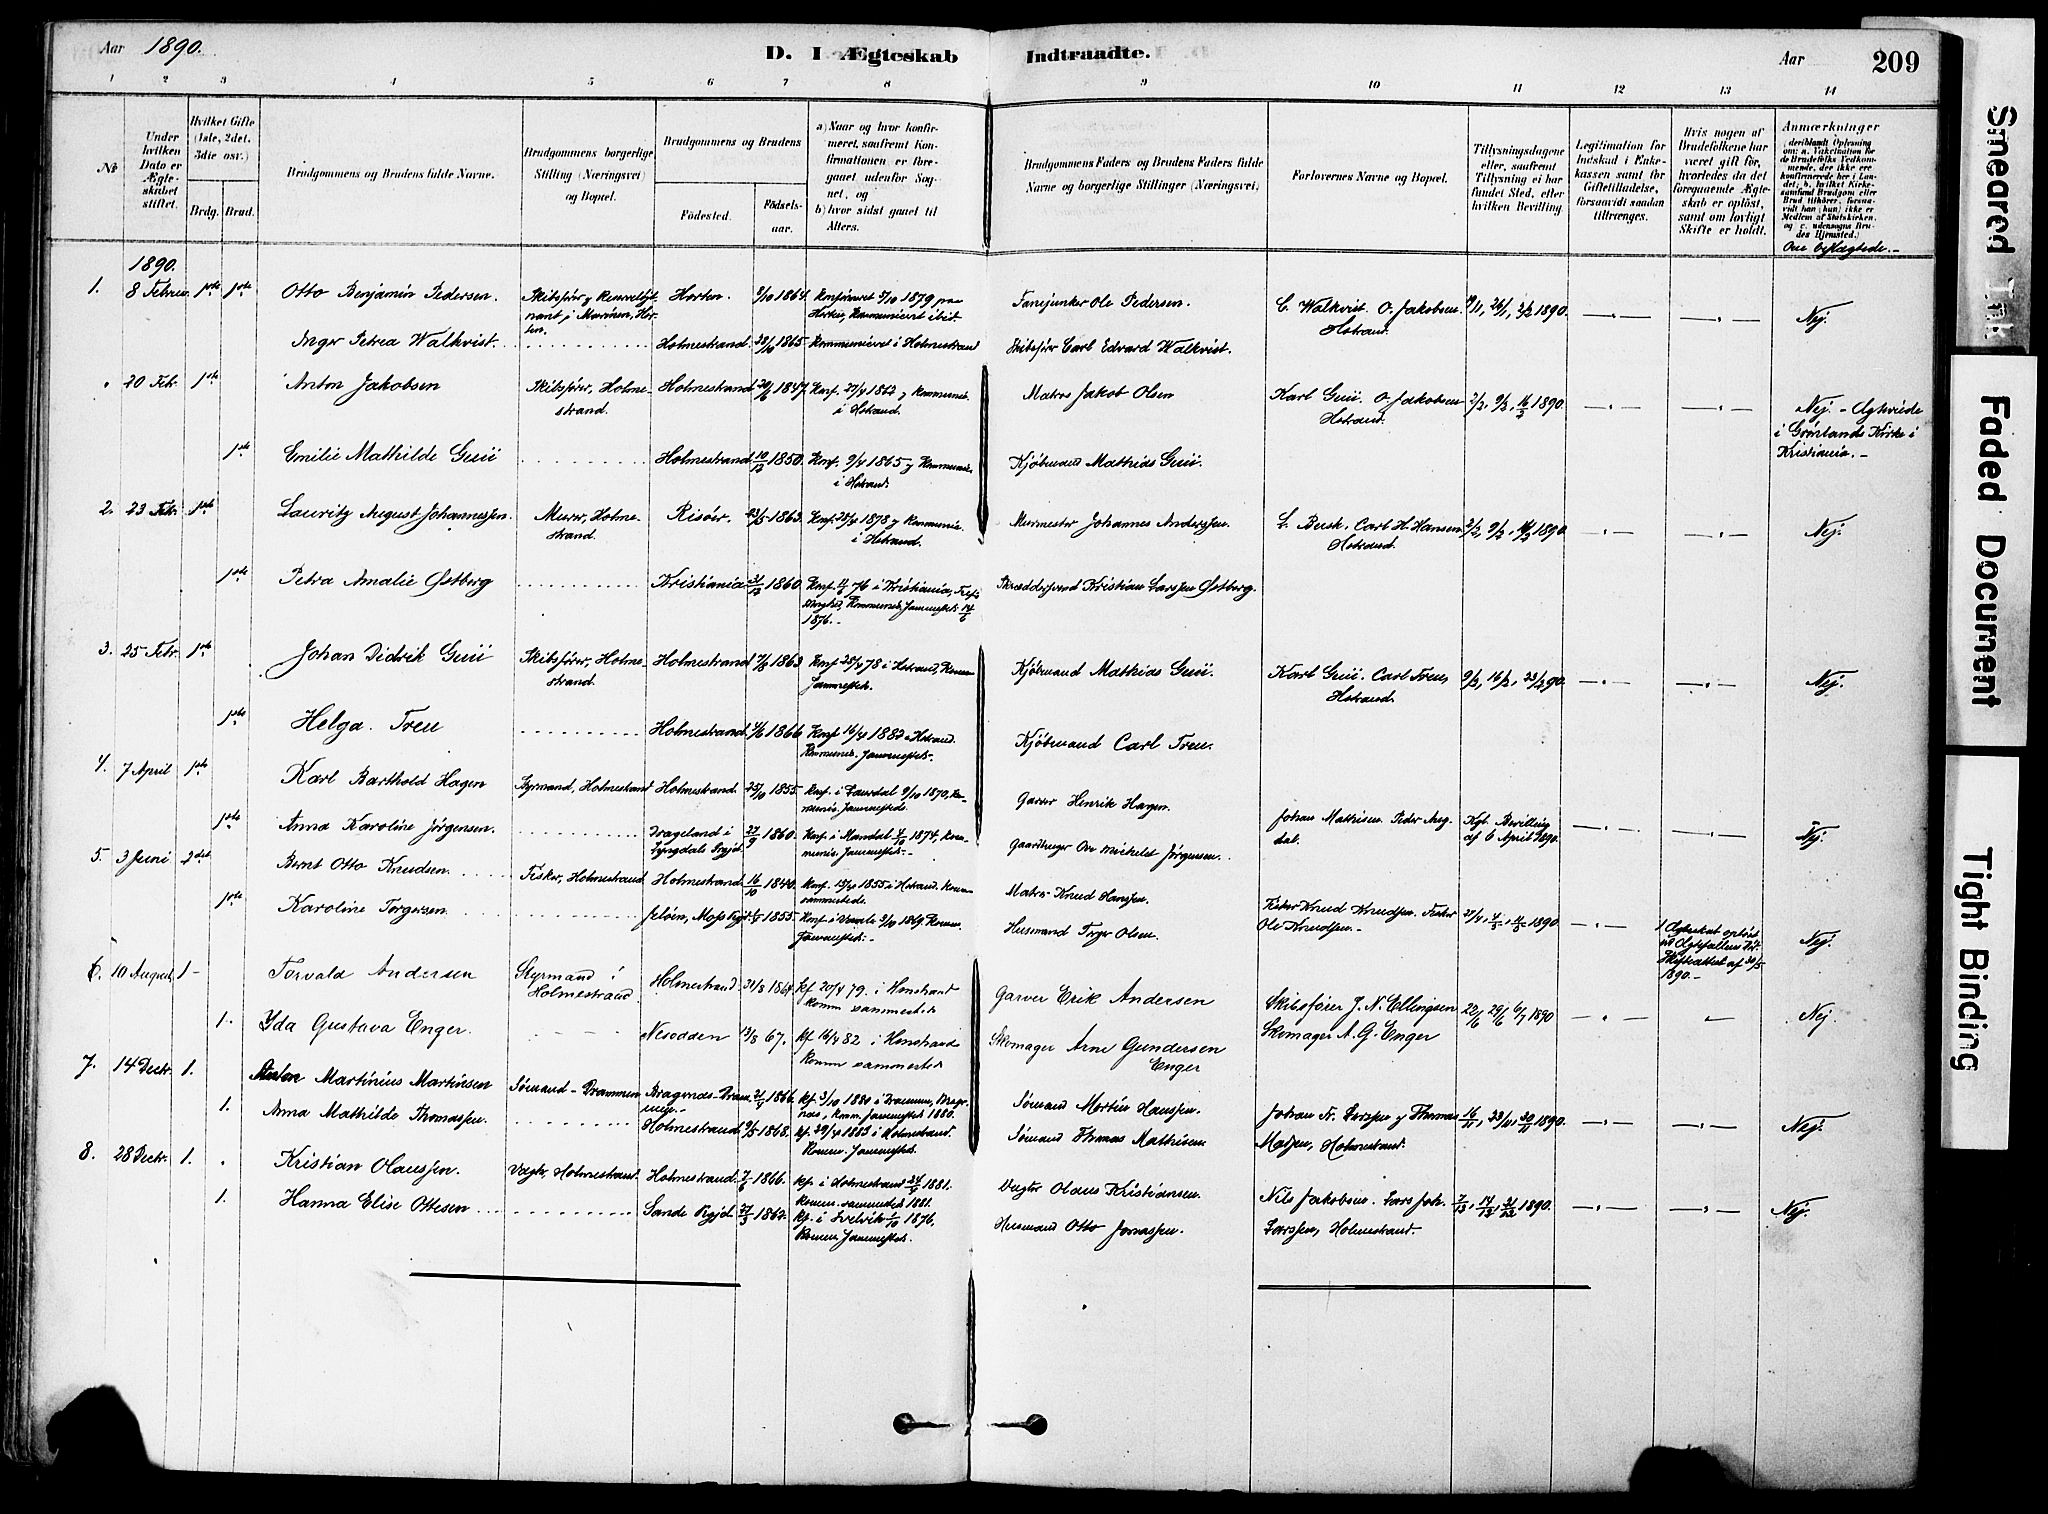 Aar 1890.
D. I Ægteskab Indtraadte.
Aar
209
1 2 3 4 5 6 7 8 9 10 11 12 13 14
No
Under hvilken Dato er Ægteskabet stiftet.
Hvilket Gifte (1ste, 2det, 3die osv.)
Brdg. Brud.
Brudgommens og Brudens fulde Navne.
Brudgommens borgerlige Stilling (Næringsvei) og Bopæl.
Brudgommens og Brudens
Födested.
Födselsaar.
a) Naar og hvor konfirmeret, saafremt Konfirmationen er foregaaet udenfor Sognet, og
b) hvor sidst gaaet til Alters.
Brudgommens Faders og Brudens Faders fulde Navne og borgerlige Stillinger (Næringsvei).
Forlovernes Navne og Bopæl.
Tillysningsdagene eller, saafremt Tillysning ei har fundet Sted, efter hvilken Bevilling
Legitimation for Indskud i Enkekassen samt for Giftetilladelse, forsaavidt saadan tiltrænges.
Hvis nogen af Brudefolkene har været gift för, hvorledes da det foregaaende Ægteskab er oplöst, samt om lovligt Skifte er holdt.
Anmærkninger
(deriblandt Oplysning om: a. Vakcination for de Brudefolks Vedkommende, der ikke ere konfirmerede her i Landet; b. hvilket Kirkesamfund Brudgom eller Brud tilhörer, forsaavidt han (hun) ikke er Medlem af Statskirken, og c. udensogns Brudes Hjemsted.)
Om beslægtede.-
1890.
1. 8 Februar 1ste 1ste Otto Benjamin Pedersen. Skibsfører Horten. 1864. Konfirmeret 5/10 1879 paa Horten, Kommuniceret ibid. Fanejunker Ole Pedersen. C. Walkvist. O. Jakobsen Hstrand. 26/1, 2/2 1890. Nej.
Inger Petrea Walkvist. Holmestrand 28/10 1865. Kommuniceret i Holmestrand Skibsfører Carl Edvard Walkvist.
20 Feb. 1ste Anton Jakobsen Skibsfører, Holmestrand. Holmestrand 1847. Konf. 27/4 1862 i Hstrand. Matros Jakob Olsen Karl Guii. O. Jakobsen Hstrand. 2/2, 9/2, 16/2 1890. Nej. - Ægteviede i Grønlands Kirke i Kristiania.-
1ste Emilie Mathilde Guii Holmestrand 10/12 1850. Konf. 9/4 1865 i Hstrand. Kjøbmand Mathias Guii.
2. 23 Feb. 1ste Lauritz August Johannessen. Murer, Holmestrand. Risøer. 23/5 1863. 1878 i Hstrand. Murmester Johannes Anderssen. Carl H. Hansen Hstrand. 2/2, 9/2, 16/2 1890. Nej.
1ste Petra Amalie Østberg Kristiania 1860. Konf. 76 i Kristiania, 1876.- Skræddersvend Kristian Larssen Østberg.
3. 25 Febr. 1ste Johan Didrik Guii Skibsfører, Holmestrand. Holmestrand 1863 Konf. 28/4 78 i Hstrand, Kommun. sammesteds. Kjøbmand Mathias Guii. Karl Guii. Carl Treu, Hstrand. 9/2, 16/2, 23/2 90. Nej.
1ste Helga Treu Holmestrand 1866 Konf. 16/4 1882 i Hstrand. Kommunic. sammesteds. Kjøbmand Carl Treu.
4. 7 April 1ste Karl Barthold Hagen Styrmand, Holmestrand Holmestrand. 25/10 1855. Konf. i 9/10 1870, Kommunic. sammesteds. Garver Henrik Hagen. Johan Mathisen. Kgl. Bevilling af 6 April 1890. Nej.
1ste Anna Karoline Jørgensen. i Lyngdals Prgjd. 27/9 1860. Konf. i Mandal 1874, Kommunic. sammesteds.- Jørgensen.
5. 3 Juni 2det Bernt Otto Knudsen. Fisker, Holmestrand Holmestrand 16/10 1840. Konf. 15/4 1855 i Hstrand. Komm. sammesteds. Matros Knud Hanssen. Fisker Knud Knudsen. Fisker Ole Knudsen.- 27/4, 4/5, 11/5 1890 Nej.
1ste Karoline Torgersen. Jeløen, Moss 1855. Konf. i 3/10 1869. Komm. sammesteds.- Husmand Torger Olsen. 1 Ægteskab opløst Skifteattest af 30/5 1890.-
6. 10 August, 1- Torvald Andersen Styrmand i Holmestrand Holmestrand 31/3 1864 kf 20/4 79. i Hmstrand komm sammesteds Garver Erik Andersen Skibsfører J. N. Ellingsen 22/6 29/6 6/7 1890 Nej
1. Yda Gustava Enger. Nesodden 13/8 67, kf 16/4 82 i Hmstrand komm sammesteds Skomager Arne Gundersen Enger Skomager A. G. Enger
7. 14 Decbr. 1. Martinius Martinsen Sømand - Drammen Bragenæs-Drammen. 1866. kf. 3/10 1880 i Drammen, Komm. sammesteds 1880. Sømand Martin Hanssen. Johan Fr. Larssen Thomas 16/11, 23/11, 30/11 1890. Nej.
1. Anna Mathilde Thomassen. Holmestrand 9/5 1868. kf. 29/4 1883 i Holmestrand. Komm. sammesteds. Sømand Thomas Mathisen Holmestrand.
8. 28 Decbr. 1. Kristian Olaussen. Vægter, Holmestrand. Holmestrand. 1866. kf. i Holmestrand 1881. Komm. sammesteds 1881. Vægter Olaus Kristiansen. Nils Jakobsen. Lars Joh. Larssen, Holmestrand. 7/12, 14/12, 21/12 1890. Nej.
1. Hanna Elise Ottesen Sande Prgjd. 27/3 1862. kf. i Svelvik 1/10 1876. Komm. sammesteds. Husmand Otto Jonassen.
Smeared Ink
Faded Document
Tight Binding